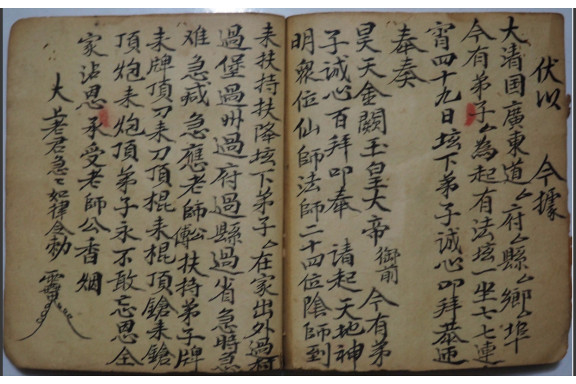 伏以 今據
大清国廣東道厶府厶縣厶鄉厶埠
今有弟子厶為起有法坛一坐七七連
宵四十九日坛下弟子誠心叩拜恭迎
奉奏
昊天金闕玉皇大帝 御前 今有弟
子誠心百拜叩奉 請起天地神
明衆位仙師法師二十四位陰師到
耒扶持扶降坛下弟子厶在家出外過
過堡過卅過府過縣過省急時急
难急喊急應老師扶持弟子牌
耒牌頂刀耒刀頂棍耒棍頂鎗耒鎗
頂炮耒炮頂弟子永不敢忘恩全
家沾恩承受老師公香烟
大老君急〻如律令勅